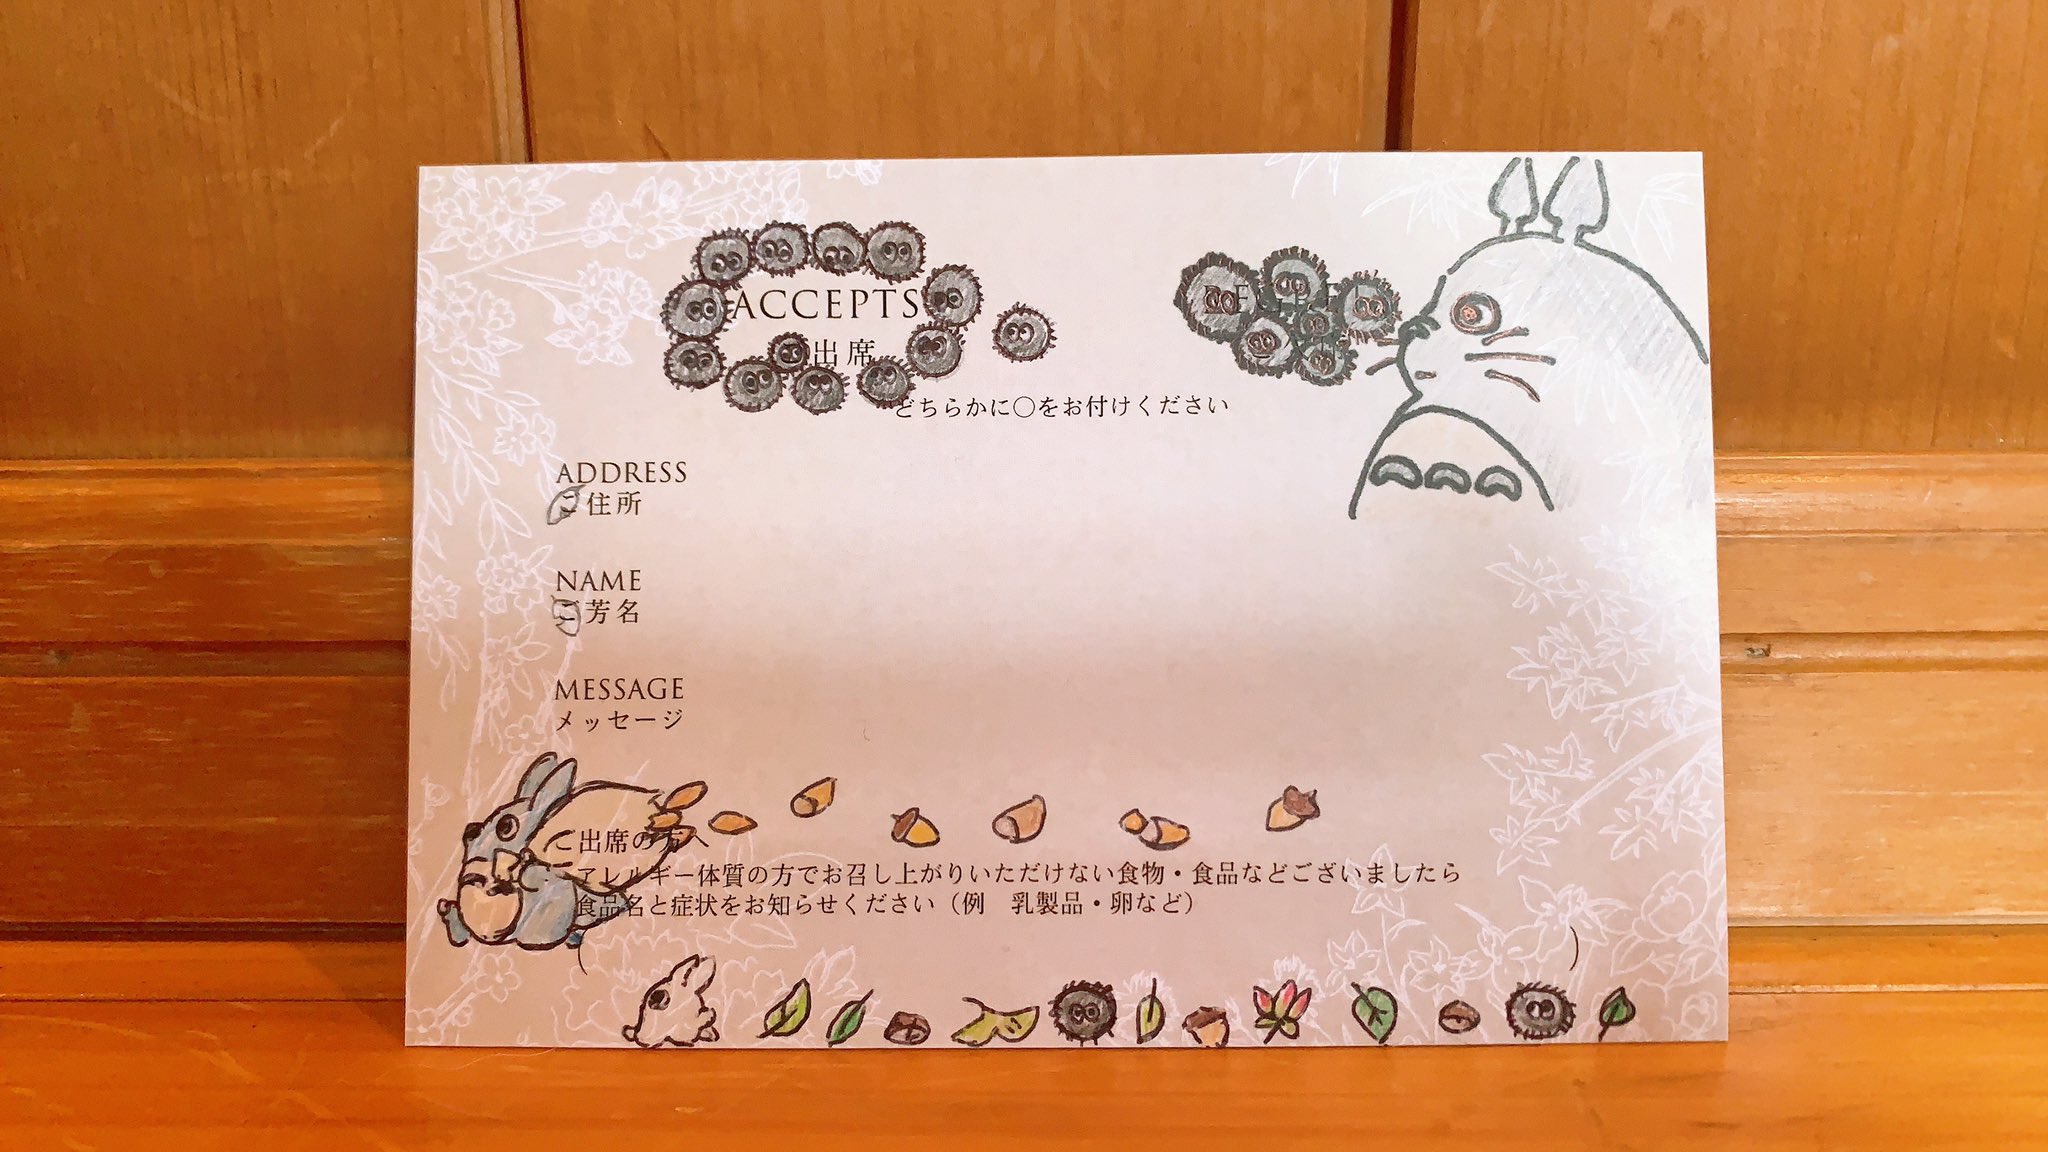 ACCEPTS
出席
どちらかに○をお付けください
ADDRESS
ご住所
NAME
ご芳名
MESSAGE
メッセージ
ご出席の方へ
アレルギー体質の方でお召し上がりいただけない食物・食品などございましたら
食品名と症状をお知らせください（例　乳製品・卵など）